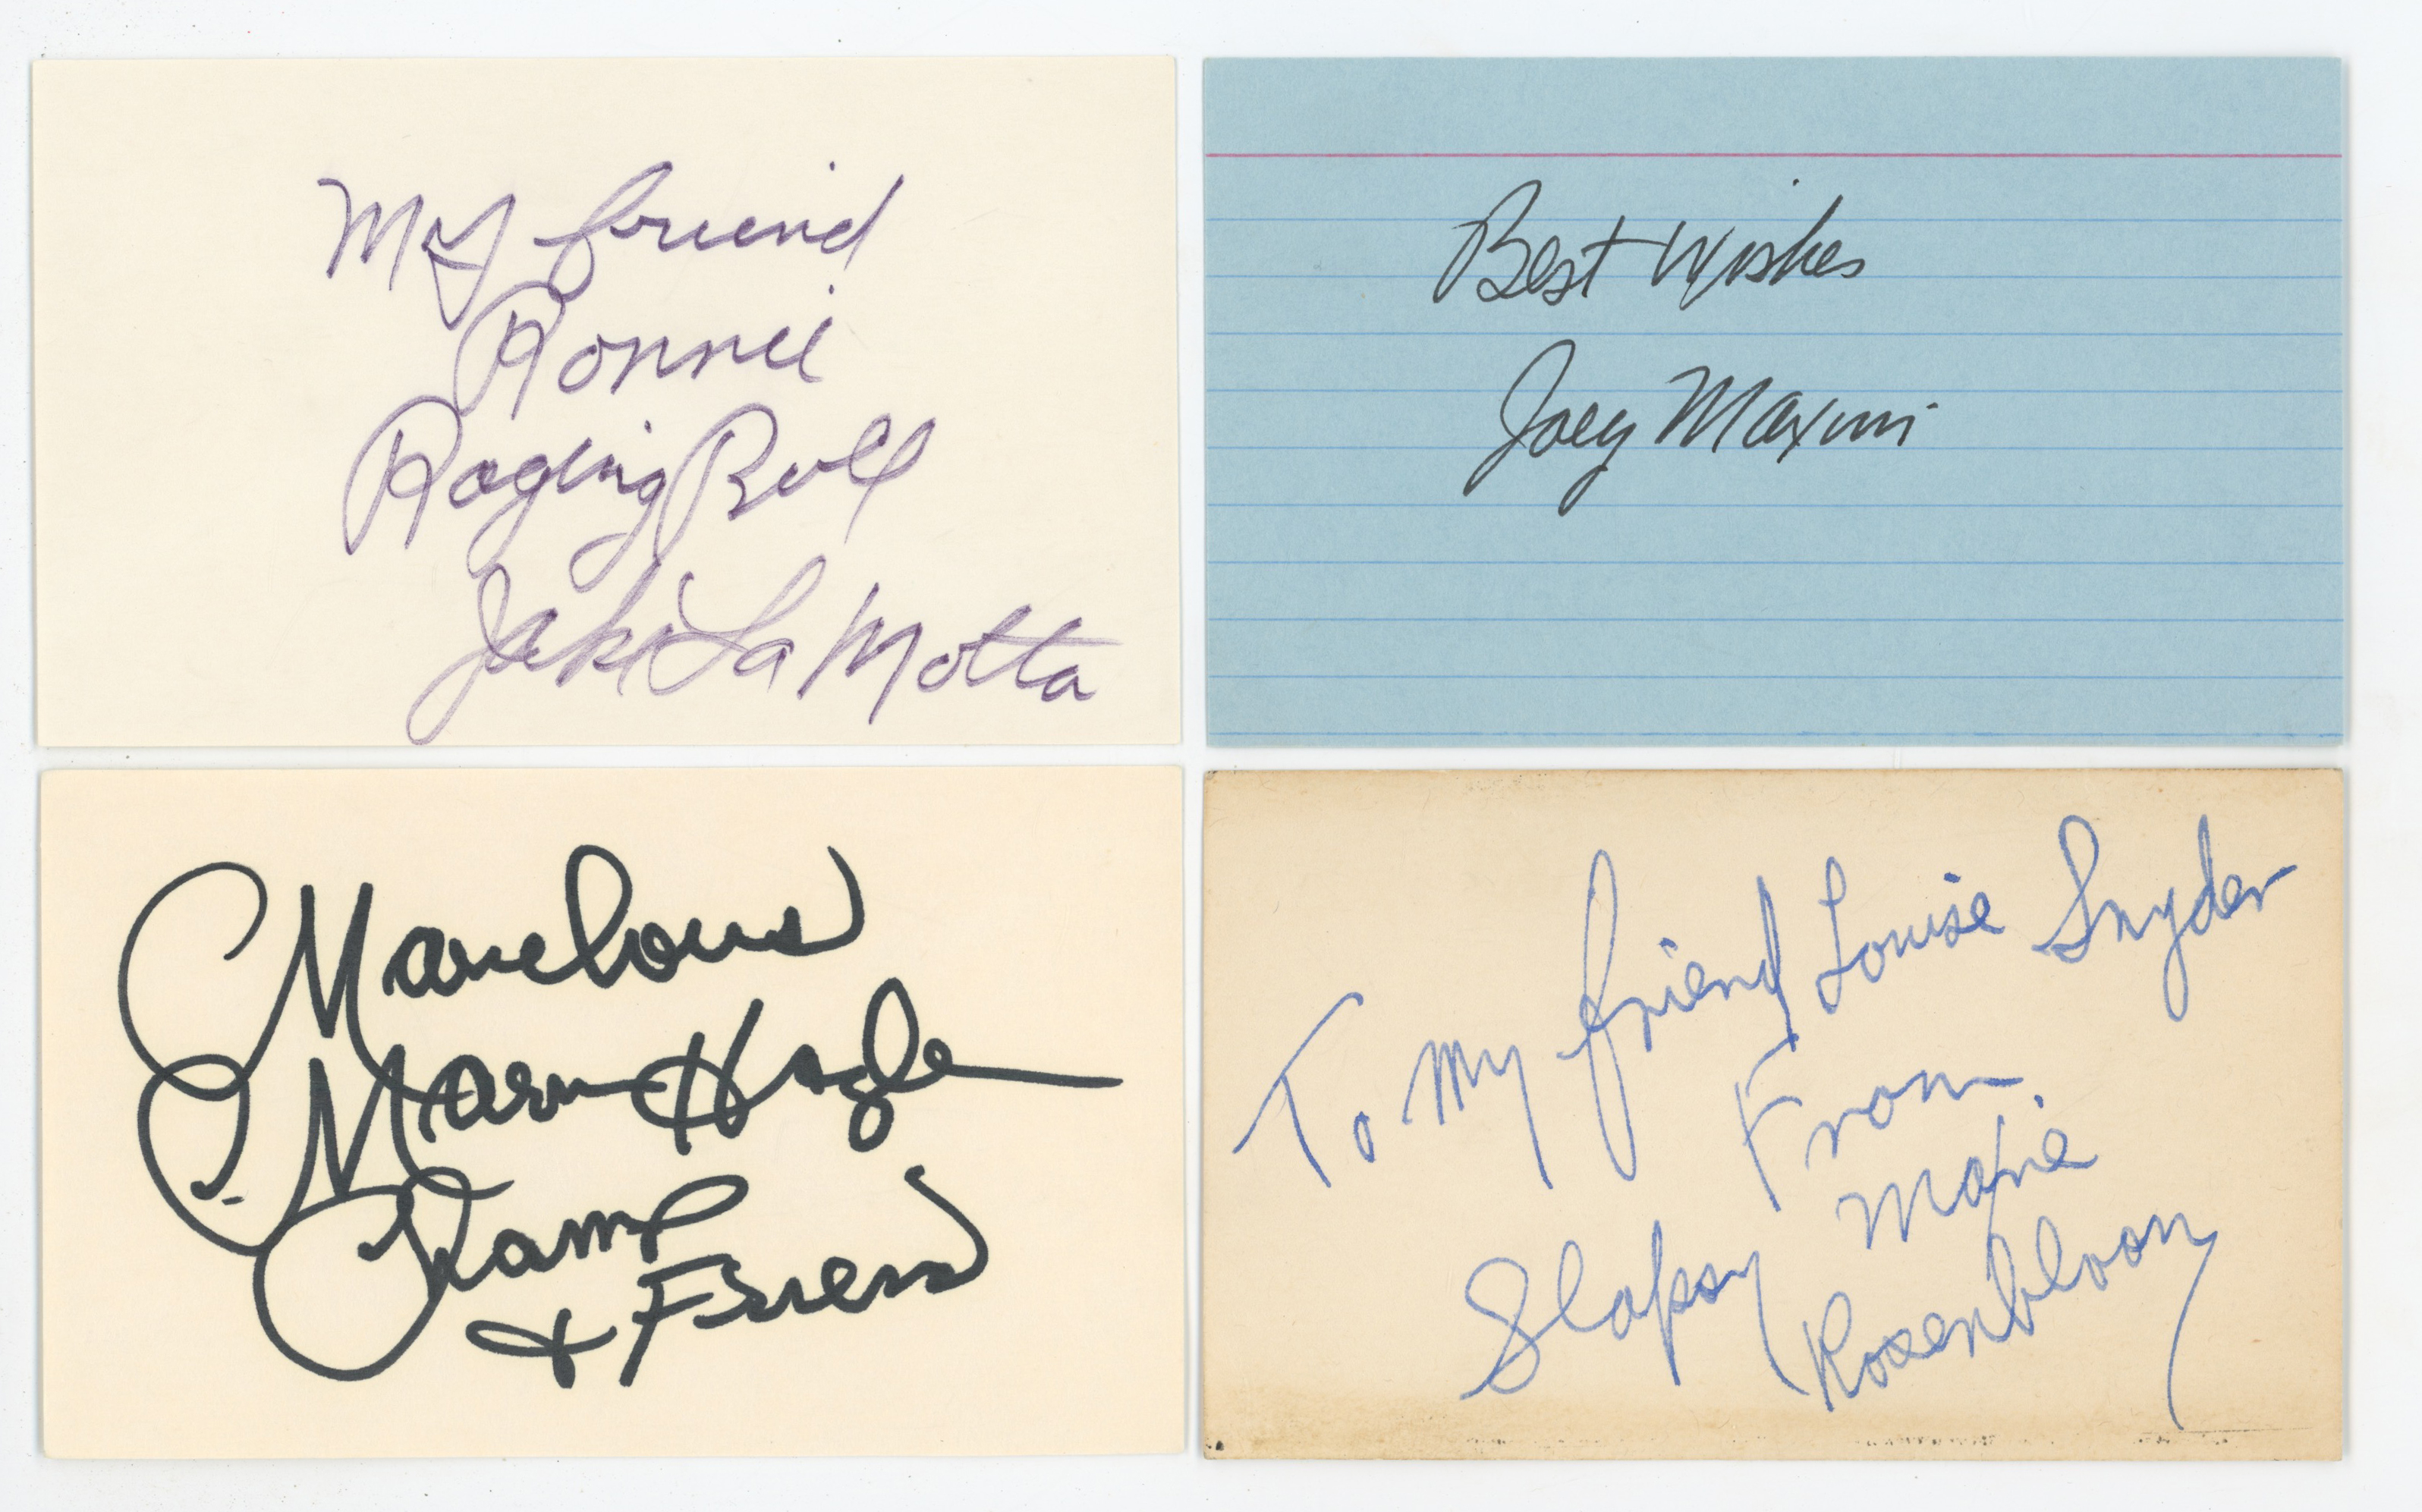 My friend
Ronnie
Raging Bull
Jake La Motta
Best Wishes
Joey Maxim
Marvelous
Marv Hagler
Champ
+ Friend
To my friend Louise Snyder
From
Maxie
Slapsy Rosenbloom